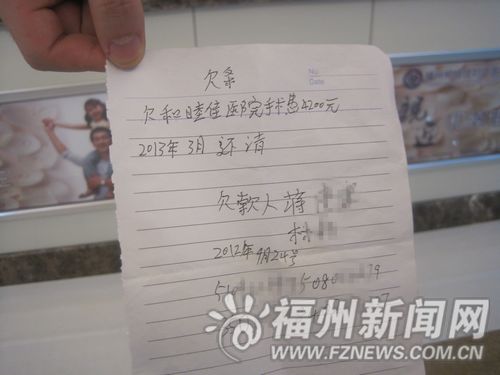 欠条
No
Date
欠和睦佳医院手术费4200元
2013年3月还清
欠款人蒋
林
2012年9月24号
510 5080 79
7
福州新闻网
WWW.FZNEWS.COM.CN